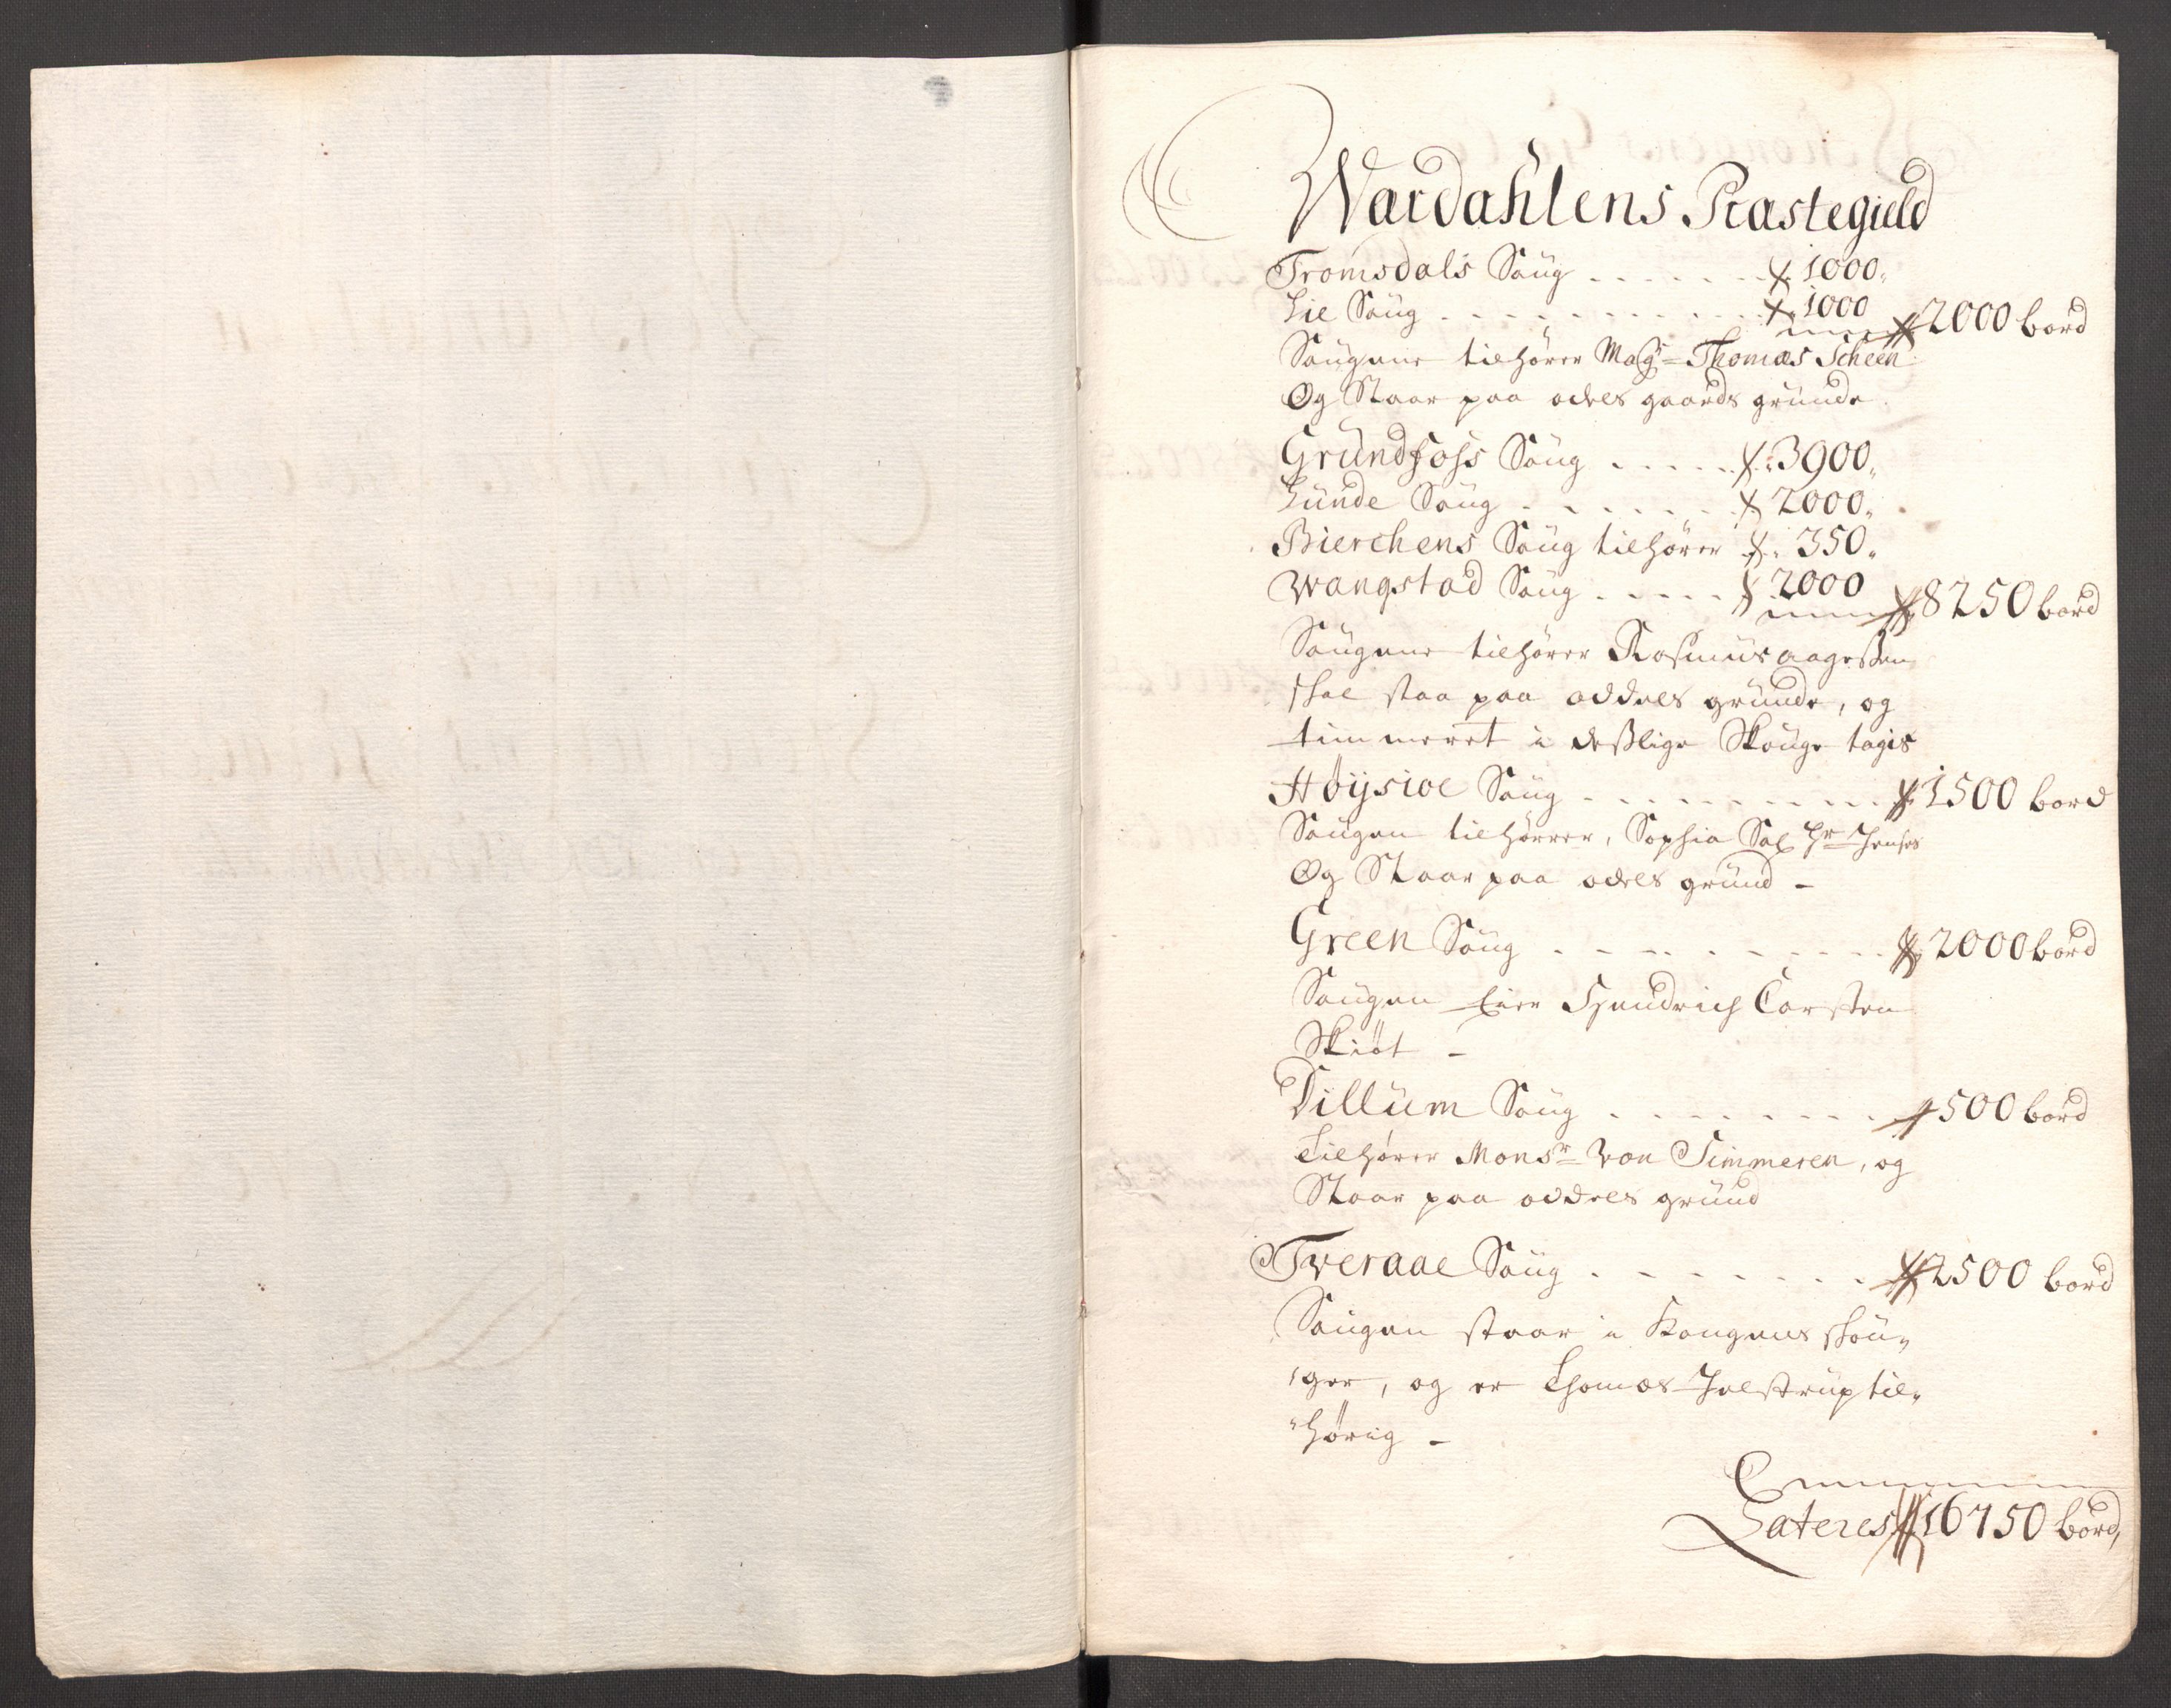 Wardahlens Præstegield
Tromsdals Saug . . . . . . 1000
Lie Saug . . . . . . . . . . 1000 2000 bord
Saugene tilhører Mag^r Thomas Scheen
Og Staar paa odels gaards grunde
Grundfoss Saug . . . . . 3900
Lunde Saug . . . . . . . 2000
Bierchens Saug tilhører 350
Wangstad Saug . . . . . 2000 8250 bord
Saugene tilhører Rasmus aagesen
skal staa paa oddels grunde, og
timmeret i deslige Skouge tagis
Høysioe Saug . . . . . . . . . 1500 bord
Saugen tilhører, Sophia Sal Hr Jenses
Og Staar paa odels grund -
Green Saug . . . . . . . . . 2000 bord
Saugen Eier Hendrich Carsten
Skiøt -
Dillum Saug . . . . . . . . 500 bord
Tilhører Mons^r von Timmeren, og
Staar paa oddels grund
Tveraae Saug . . . . . . . 2500 bord
Saugen staar i Kongens skou„
„ger, og er Thomas Jelstrup til„
„hørig -
Lateres 16750 bord